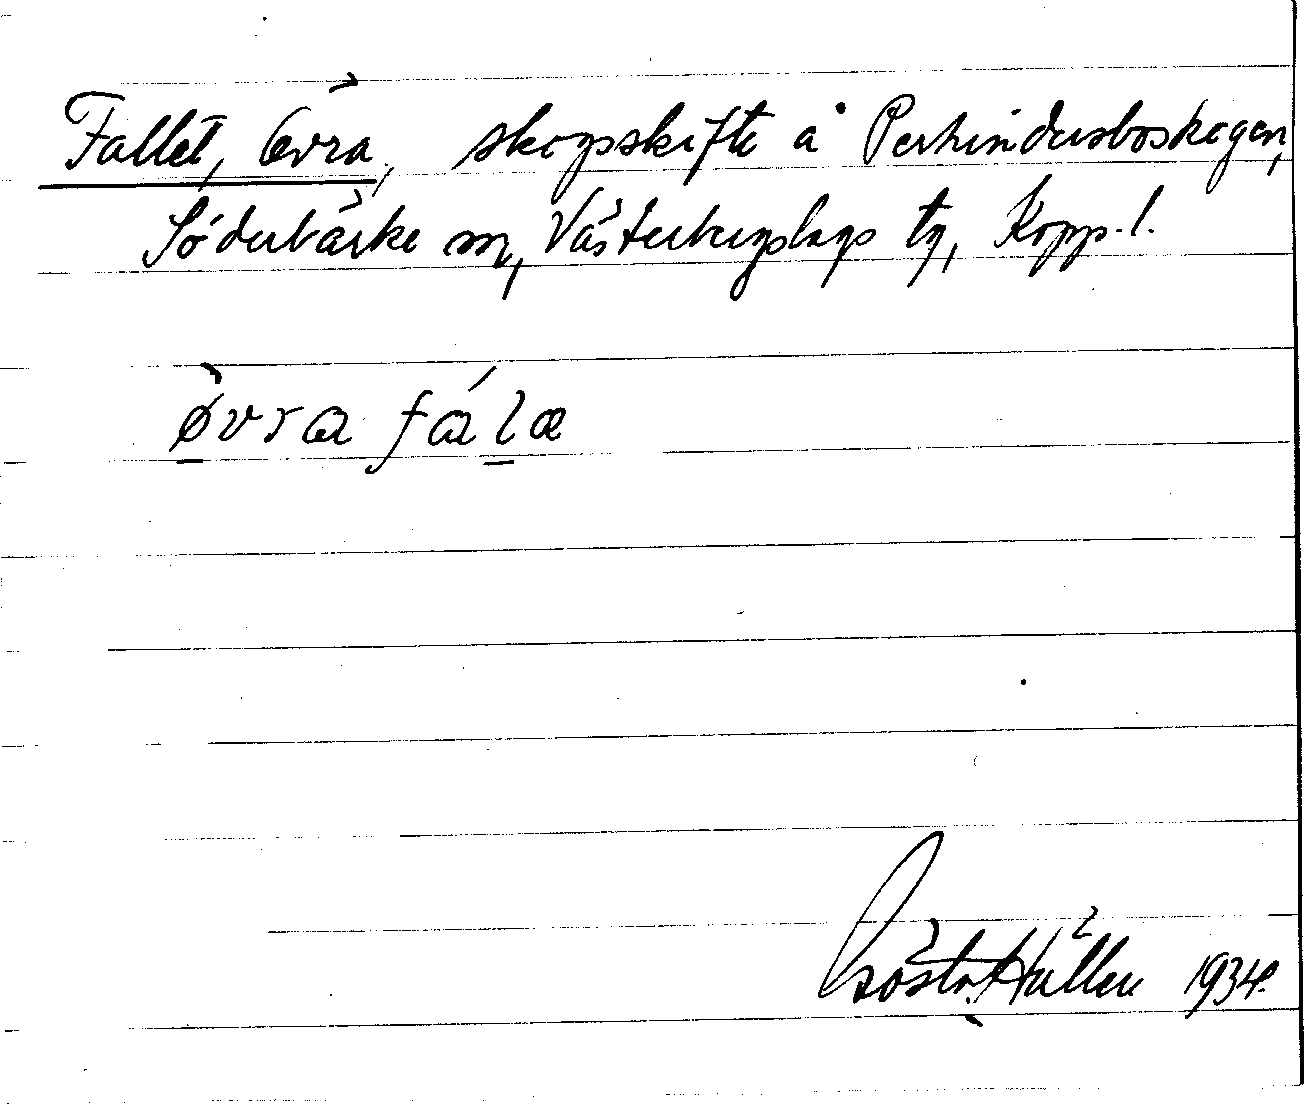 Fallet, Övra, skogsskifte å Perhindersboskogen,
Söderbärke sn, Västerbergslags tg, Kopp. l.
ø̀vra fálæ
Gösta Hallén 1934.